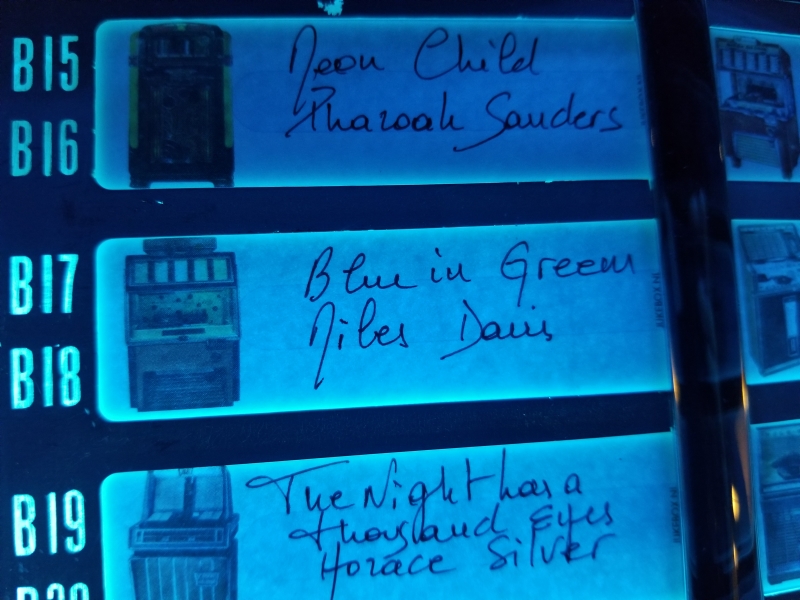 B15
Moon Child
B16
Pharoah Sanders
B17
Blue in Green
B18
Miles Davis
B19
The Night has a
thousand Eyes
Horace Silver